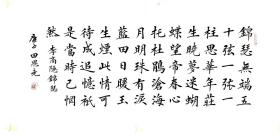 錦瑟無端五
十弦一弦一
柱思華年莊
生曉夢迷蝴
蝶望帝春心
托杜鵑滄海
月明珠有淚
藍田日暖玉
生煙此情可
待成追憶祇
是當時已惘
然 李商隱錦瑟
田恩亮